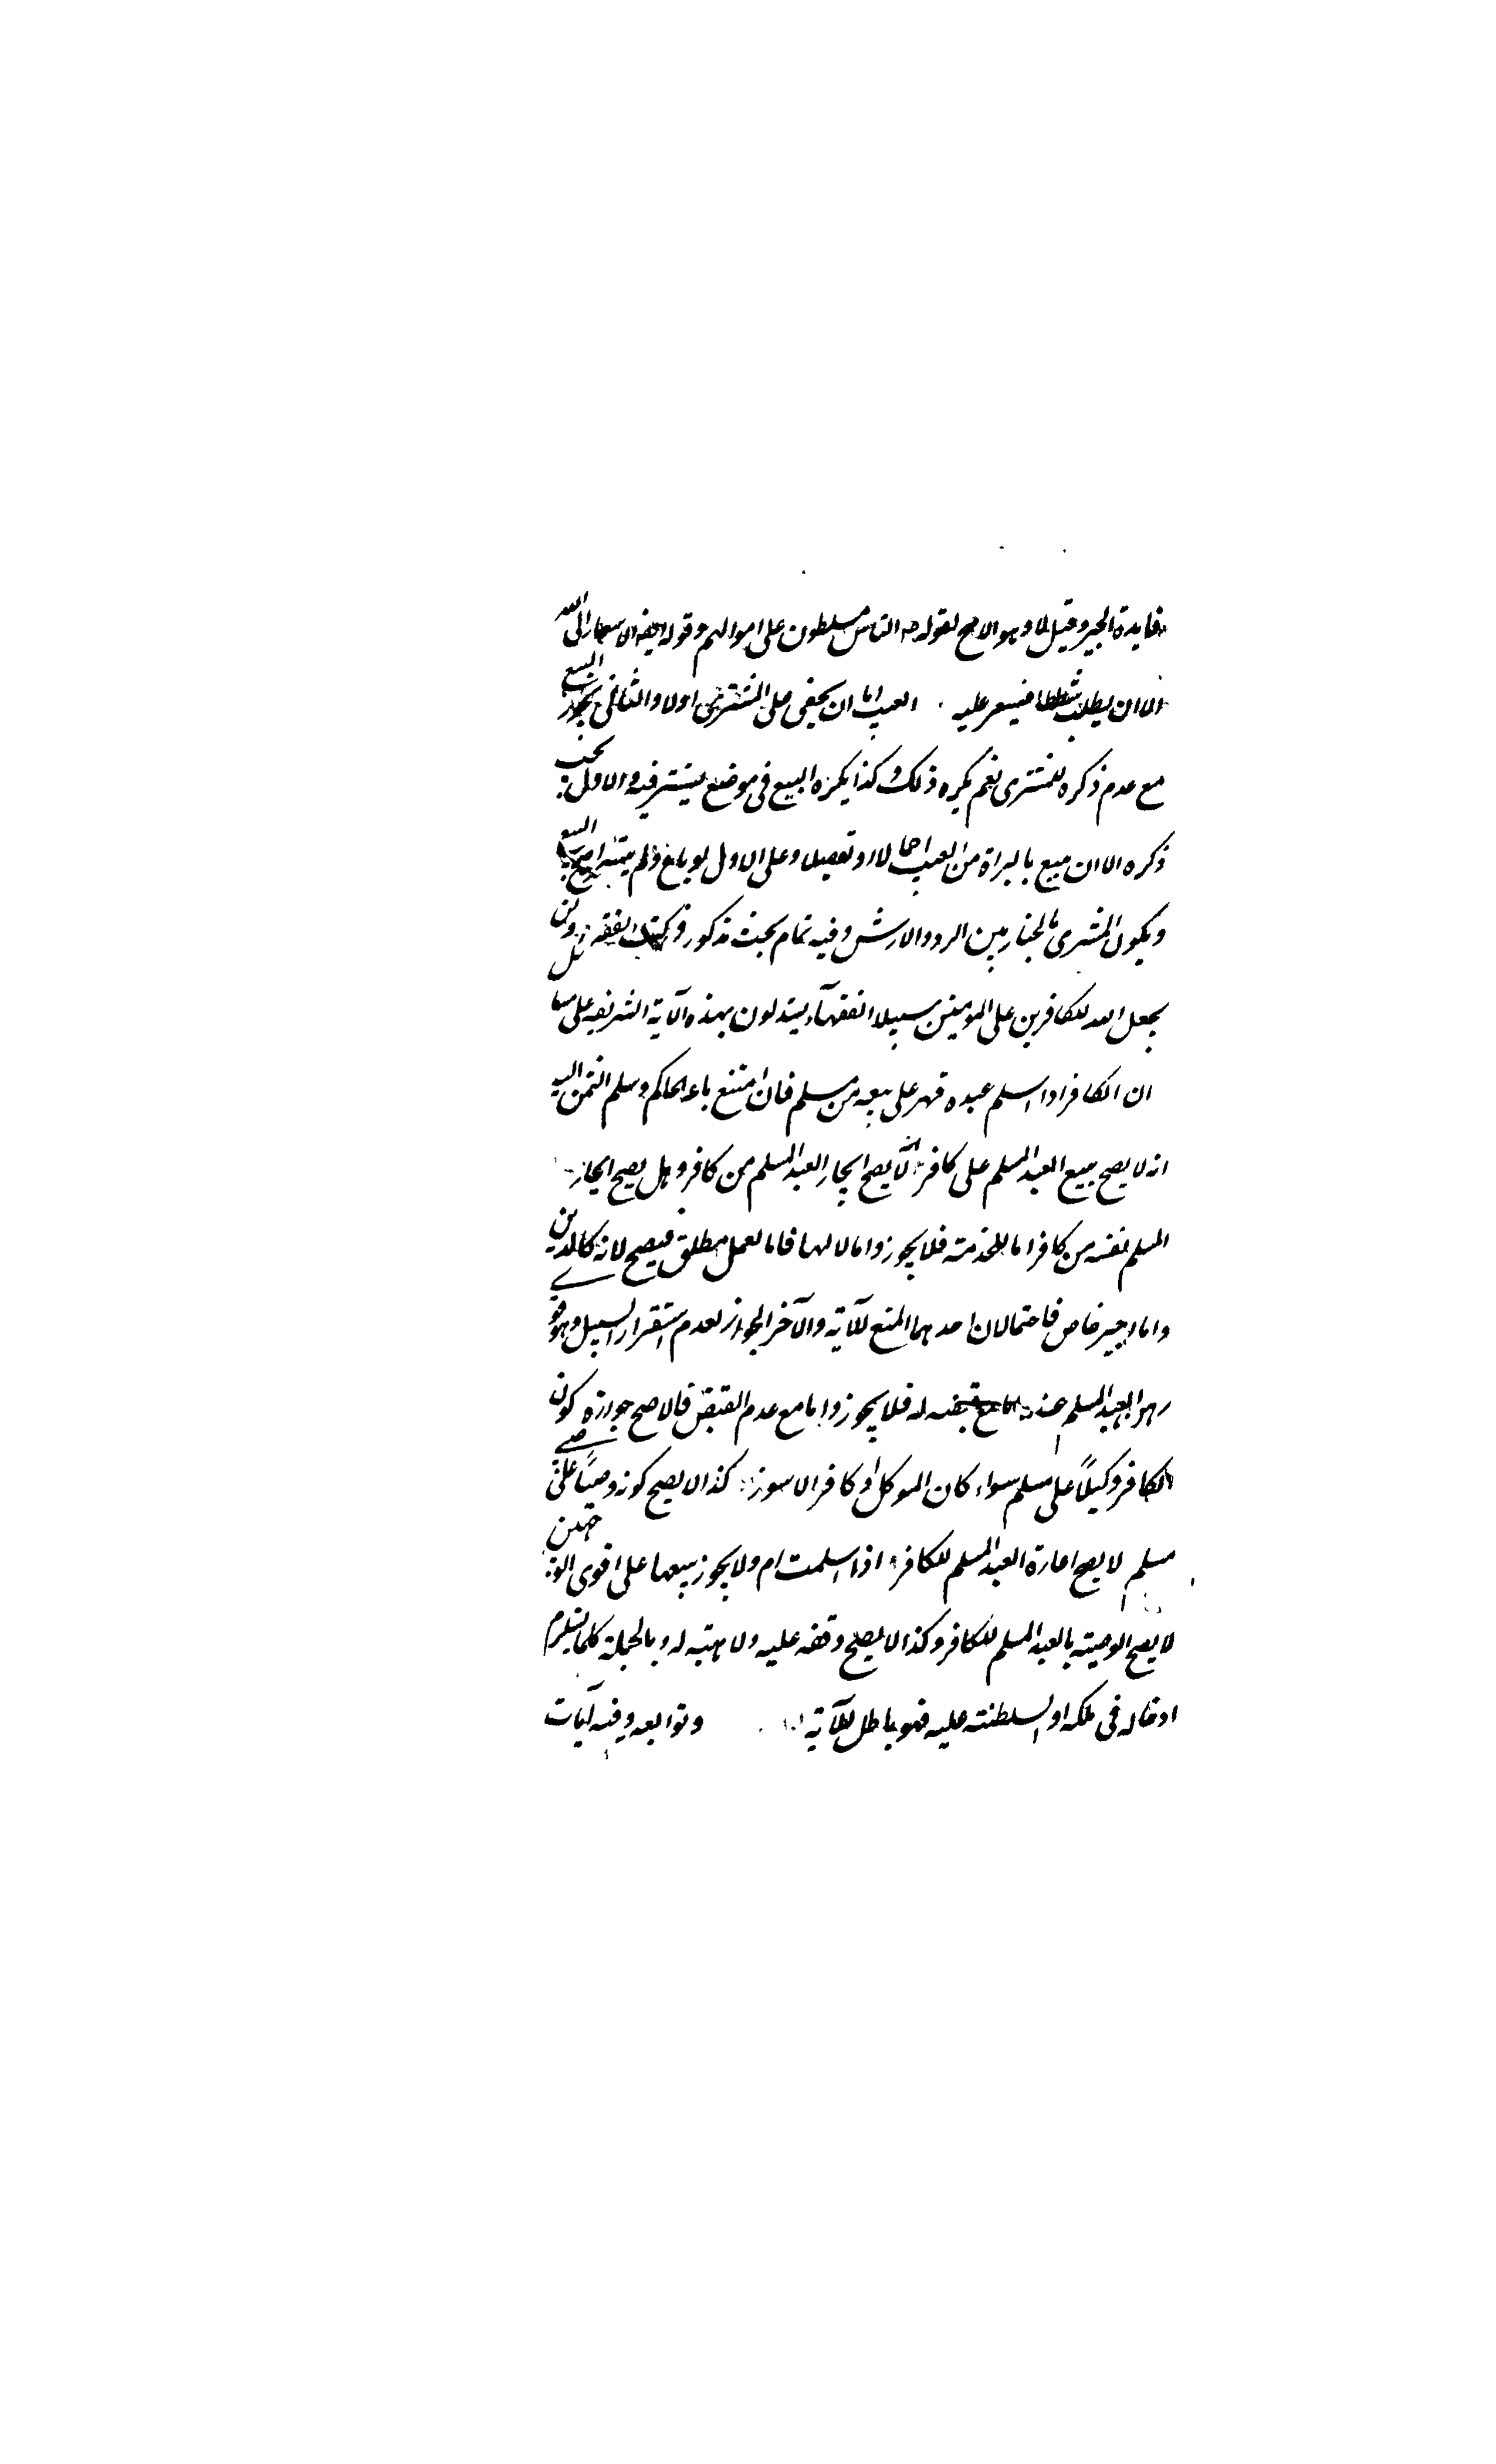 فايدة الجبر وقيل لا وهو الاصح لقوله صه الناس مسلطون على اموالهم وقوله ايضا الاسعار الى الله
الا ان يطلب شططا فيسعر عليه العيب اما ان يخفى على المشترى اولا والثانى يجوز البيع
مع عدم ذكره للمشترى نعم يكره ذلك وكذا يكره البيع فى موضع يستتر فيه والاول يجب
ذكره الا ان يبيع بالبراة من العيب اجمالا او تفصيلا وعلى الاول لو باع ولم يتبرا صح البيع
ويكون المشترى بالخيار بين الرد والارش وفيه تمام بحث مذكور فى كتب الفقه ولن
يجعل الله للكافرين على المومنين سبيلا الفقهآء يستدلون بهذه الآية الشريفه على مسائل
ان الكافر اذا اسلم عبده قهر على بيعه من مسلم فان امتنع باعه الحاكم وسلم الثمن اليه
انه لا يصح بيع العبد المسلم على كافر انه لا يصح ايجار العبد المسلم من كافر وهل يصح ايجار
المسلم نفسه من كافر اما للخدمته فلا يجوز واما لا لها فاما لعمل مطلق فيصح لانه كالدين
واما اجير خاص فاحتمالان احدهما المنع للآية والآخر الجواز لعدم استقرار السبيل وهو قوي
رهن العبد المسلم عند اما مع قبضه له فلا يجوز واما مع عدم القبض فالاصح جوازه كون
الكافر وكيلاً على مسلم سواء كان الموكل او كافر الا يجوز كذا لا يصح كونه وصياً على
مسلم لا يصح اعارة العبد المسلم للكافر اذا اسلمت ام ولا يجوز بيعها على اقوى الوجهين
لا يصح الوصيته بالعبد المسلم للكافر وكذا لا يصح وقفه عليه ولا هبته له وبالجملة كلما يستلزم
ادخاله فى ملكه او السلطنته عليه فهو باطل للآية وتوابعه وفيه آيات